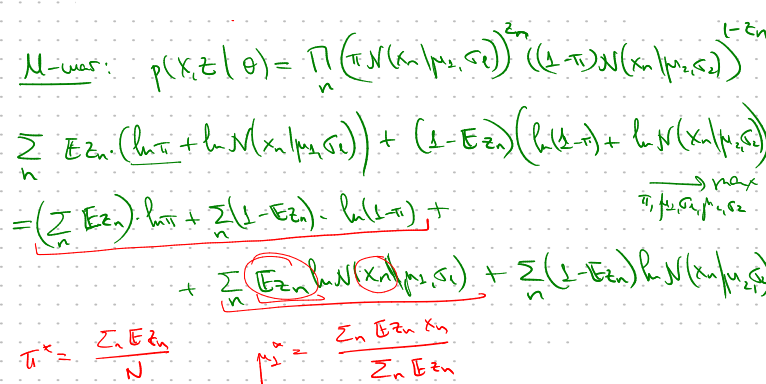 M-шаг: p(X,Z|θ) = ∏_n (π N(x_n|μ_1,σ_1))^{z_n} ((1-π)N(x_n|μ_2,σ_2))^{1-z_n}
∑_n 𝔼z_n·(ln π + ln N(x_n|μ_1,σ_1)) + (1-𝔼z_n)(ln(1-π) + ln N(x_n|μ_2,σ_2)
→ max
π, μ_1,σ_1,μ_2,σ_2
= (∑_n 𝔼z_n)·ln π + ∑_n(1-𝔼z_n)·ln(1-π) +
+ ∑_n 𝔼z_n ln N(x_n|μ_1,σ_1) + ∑_n(1-𝔼z_n) ln N(x_n|μ_2,σ_2)
π^* = ∑_n 𝔼z_n / N μ_1^* = ∑_n 𝔼z_n x_n / ∑_n 𝔼z_n